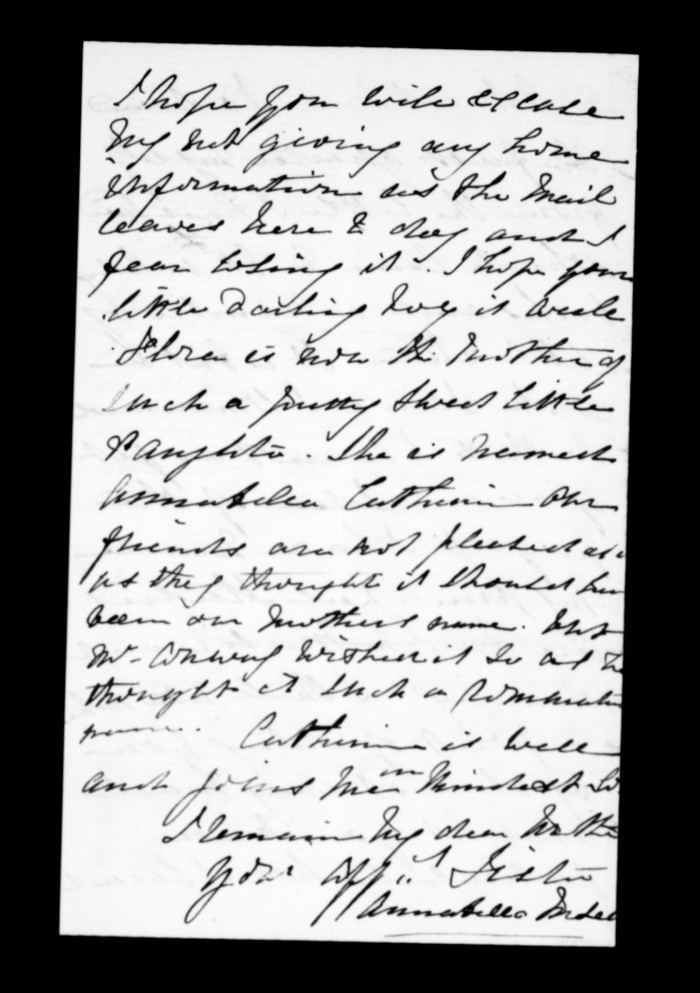 I hope you will excuse
my not giving any home
information as the mail
leaves here to day and I
fear losing it. I hope your
little darling boy is well
Flora is now the Mother of
such a pretty sweet little
Daughter. She is named
Annabella Catherine Our
friends are not pleased at
as they thought it should
been our Mothers name. but
Mr Conway wished it so as he
thought it such a romantic
name. Catherine is well
and joins me in kindest
I remain My dear
your affect Sister
Annabella